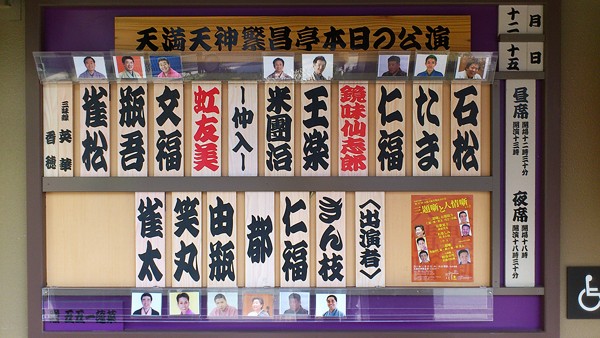 天満天神繁昌亭本日の公演
十二 月
十五 日
昼席 開場十二時三十分 開演十三時
夜席 開場十八時 開演十八時三十分
石松
たま
仁福
鏡味仙志郎
王楽
米團治
ー仲入ー
虹友美
文福
瓶吾
雀松
三味線 英華 香穂
〈出演者〉
ぎん枝
仁福
都
由瓶
笑丸
雀太
三題噺と人情噺